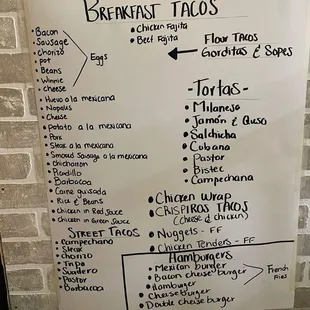 BREAKFAST TACOS
Bacon
Sausage
Chorizo
pot
Beans
Winnie
cheese
Eggs
Huevo a la mexicana
Nopales
Cheese
Potato a la mexicana
Pork
Steak a la mexicana
Smoked Sausage a la mexicana
Chicharron
Picadillo
Barbacoa
Carne guisada
Rice & Beans
Chicken in Red Sauce
Chicken in Green Sauce
STREET TACOS
Campechana
Steak
Chorizo
Tripa
Suadero
Pastor
Barbacoa
Chicken Fajita
Beef Fajita
Flour TACOS
Gorditas & Sopes
-Tortas-
Milanesa
Jamón & Queso
Salchicha
Cubana
Pastor
Bistec
Campechana
Chicken Wrap
CRISPIROS TACOS
(cheese & chicken)
Nuggets - FF
Chicken Tenders - FF
Hamburgers
Mexican burder
Bacon cheese burger
Hamburger
Cheeseburger
Double cheese burger
French
Fries